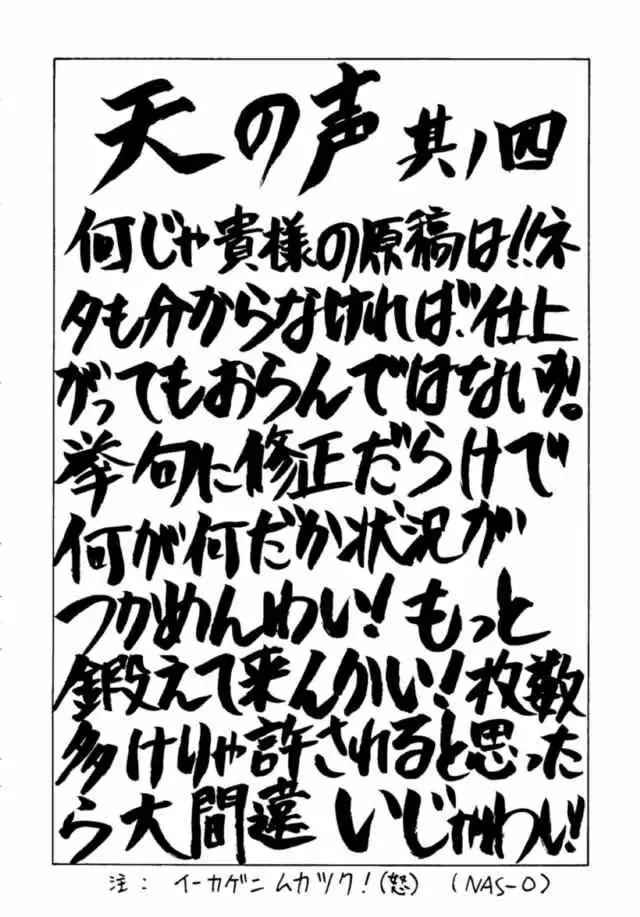 天の声 其ノ四
何じゃ貴様の原稿は!!ネ
タも分からなければ、仕上
がってもおらんではないか!。
挙句に修正だらけで
何が何だか状況が
つかめんわい!もっと
鍛えて来んかい!枚数
多けりゃ許されると思った
ら大間違いじゃわい!
注: イーカゲンニムカツク!(怒) (NAS-O)